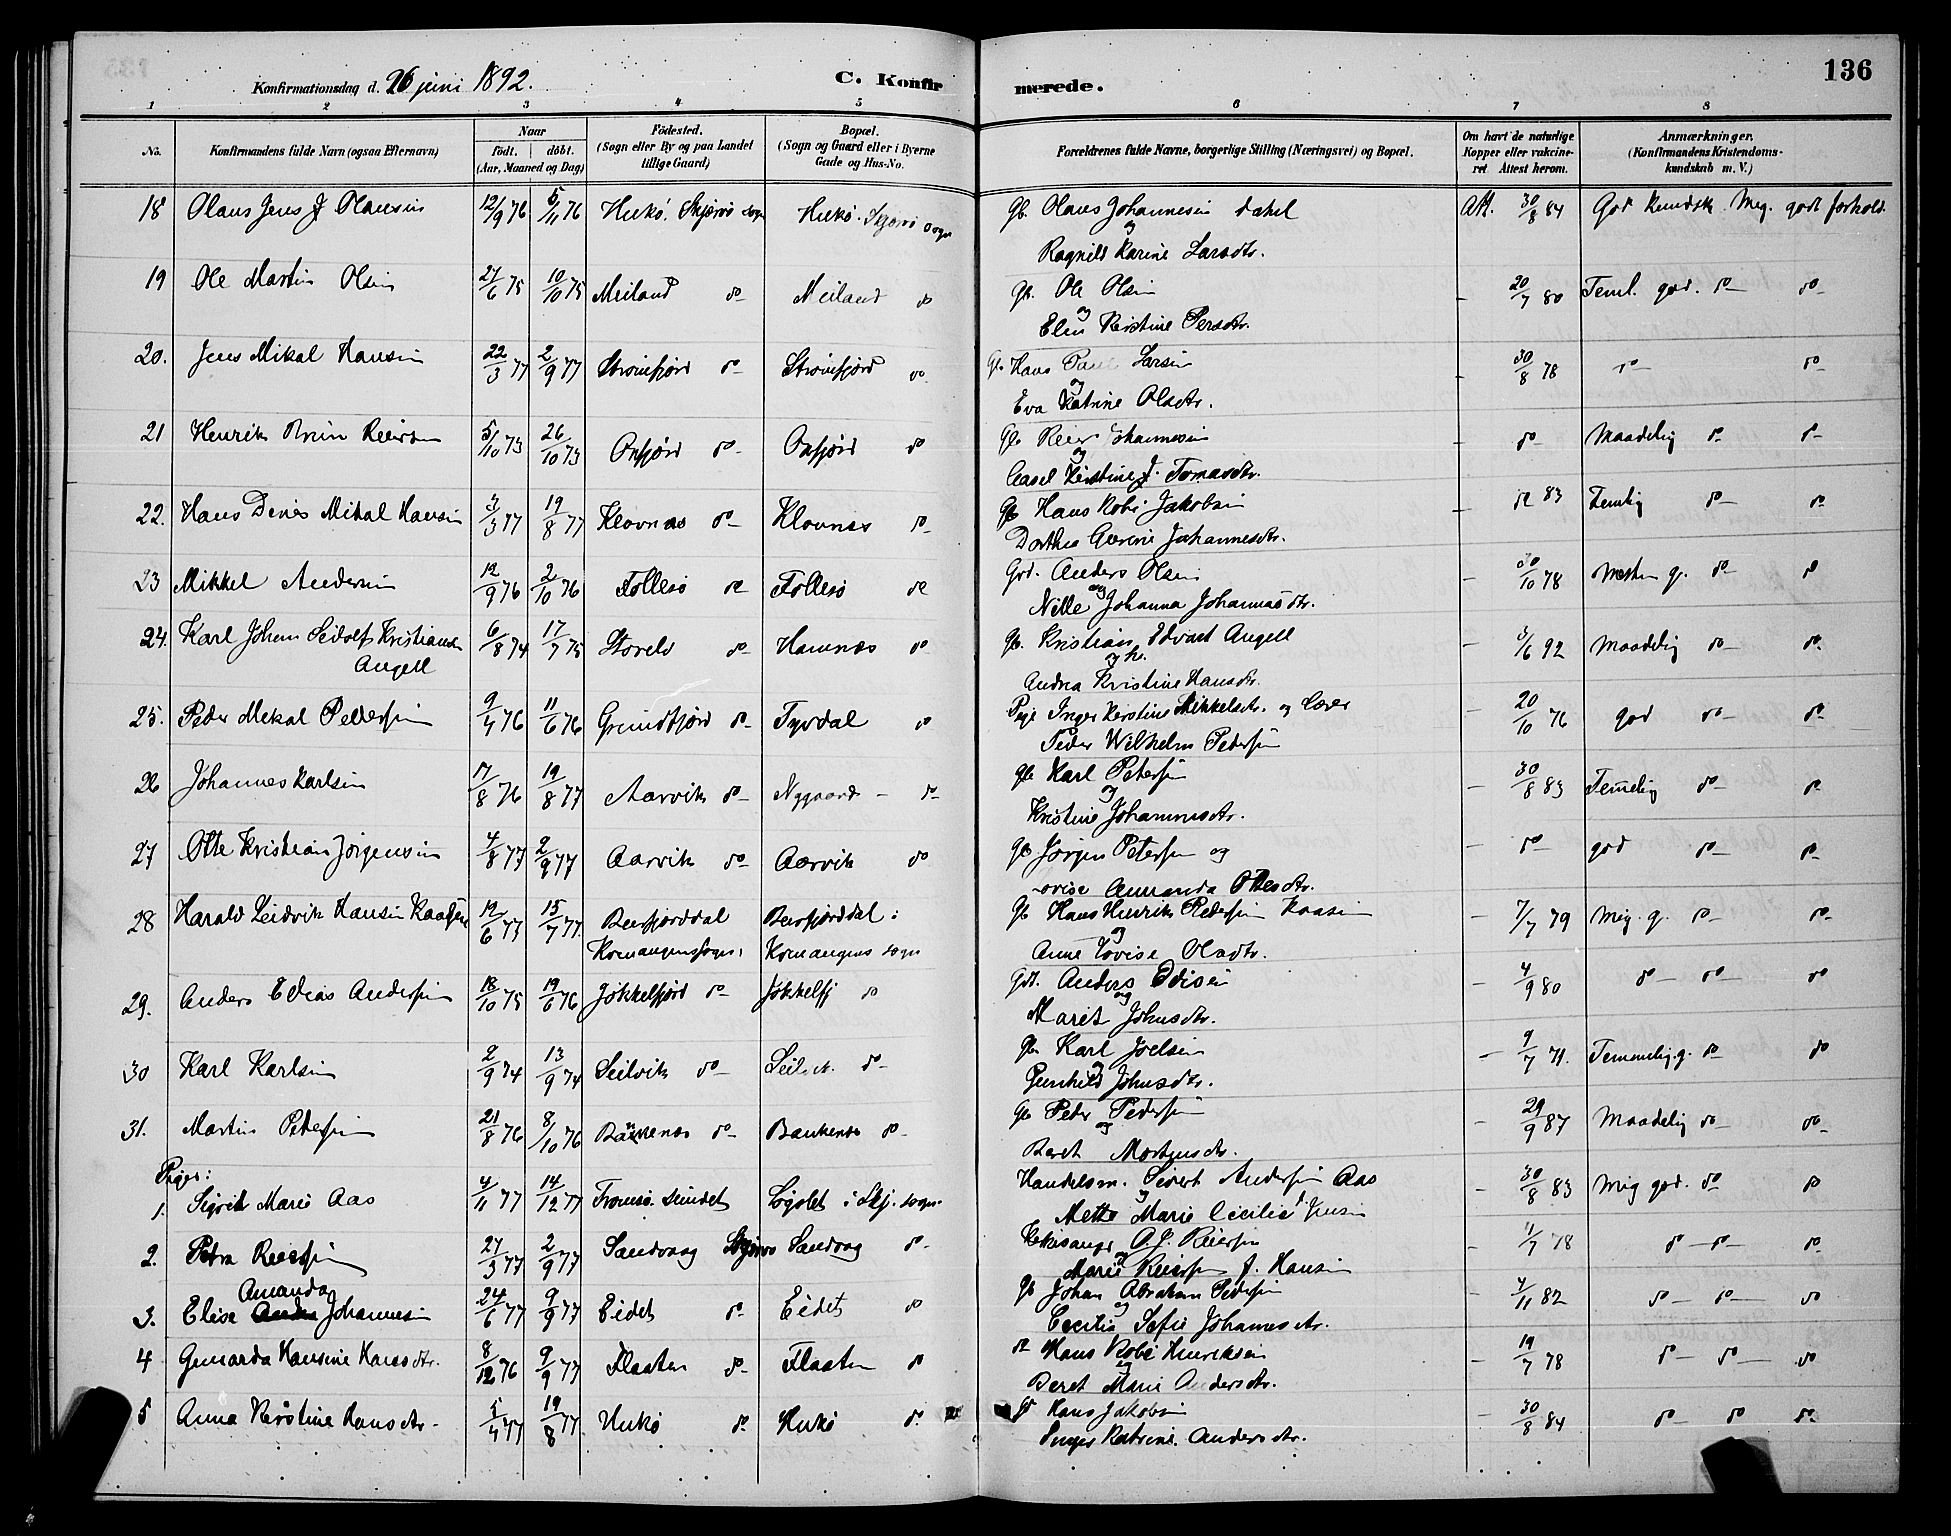 136
Konfirmationsdag d. 26 juni 1892.
C. Konfirmerede.
1 2 3 4 5 6 7 8
No.
Konfirmandens fulde Navn (ogsaa Efternavn)
Naar
födt. döbt.
(Aar, Maaned og Dag)
Födested.
(Sogn eller By og paa Landet
tillige Gaard)
Bopæl.
(Sogn og Gaard eller i Byerne
Gade og Hus-No.
Forældrenes fulde Navne, borgerlige Stilling (Næringsvei) og Bopæl.
Om havt de naturlige
Kopper eller vakcine-
ret Attest herom.
Anmærkninger.
(Konfirmandens Kristendoms-
kundskab m. V.)
18 Olaus Jens J Olausen 12/9 76 5/11 76 Hukö. Skjærvö sogn Hukö. Skjervö sogn Gb. Olaus Johannesen Att. 30/8 84 God kundsk. Meg. godt forhold.
og
Ragnild Karine Larsdtr.
19 Ole Martin Olsen 27/6 75 10/10 75 Meiland do Meiland do Gb. Ole Olsen - 20/7 80 Teml. god. do do
og
Elen Kristine Persdtr.
20. Jens Mikal Hansen 22/3 77 2/9 77 Straumfjord do Straumfjord do Gb. Hans Larsen - 30/8 78 do do
og
Eva Katrine Olsdtr.
21 Henrik Reiersen 5/10 73 26/10 73 Oxfjord do Oxfjord do Gb. Reier Johannesen - do Maadelig do do
og
Kirstine J. Tomasdtr.
22. Hans Denis Mikal Hansen 3/3 77 19/8 77 Klovnes do Klovnes do Gb. Hans Jakobsen - do 83 Temlig do do
Dorthea Johannesdtr.
23 Mikkel Andersen 12/9 76 2/10 76 Follesö do Follesö do Grd. Anders Olsen - 30/10 78 do do
og
Nille Johanna Johannesdtr.
24. Karl Johan Seilolf Kristiansen 6/8 74 17/7 75 Storelv do Hamnæs do Gb. Kristian Edvart Angell - 3/6 92 Maadelig do do
Angell
og h.
Andrea Kristine Hansdtr.
25. Peder Mekal Pedersen 9/4 76 11/6 76 Grundfjord do Tyvdal do Pige Inger Kerstine Mikkelsdtr. og - 20/10 76 god do do
Peder Wilhelm Pedersen
26 Johannes Karlsen 17/8 76 19/8 77 Aarvik do Nygaard - do Gb Karl Petersen - 30/8 83 Temelig do do
og
Kristine Johannesdtr.
27 Otte Kristian Jörgensen 4/8 77 2/9 77 Aarvik do Aarvik do Gb Jörgen Petersen og - do god do do
Lovise Amanda Ottesdtr.
28 Harald Leidvik Hansen Kaasen 12/6 77 15/7 77 Bursfjorddal Bursfjorddal i Gb Hans Henrik Pedersen Kaasen - 7/7 79 Meg. g. do do
Kvænangens sogn. Kvænangens sogn
og
Anne Lovise Olsdtr.
29. Anders Edias Andersen 18/10 75 19/6 76 Jökkelfjord do Jökkelfj do Gd. Anders Edisen - 4/9 80 do - do do
og
Maret Johnsdtr.
30 Karl Karlsen 2/9 74 13/9 74 Seilvik do do Gb Karl Joelsen - 9/7 71. Temmelig g. do do
og
Gunhild Johnsdtr.
31. Martin Pedersen 21/8 76 8/10 76 Bankenes do Bankenes do Gb Peder Pedersen - 29/9 87 Maadelig do do
og
Beret Mortensdtr.
Piger:
1. Sigrid Marie Aas 4/11 77 14/12 77 Tromsö Sundet Sögelet i Skj. sogn. Handelsm. Sivert Andersen Aas - 30/8 83 Meg god. do do
og
Mette Marie Cecilie f. Jensen
2. Petra Reiersen 27/3 77 2/9 77 Sandvaag Skjervö Sandvaag do Kirkesanger O. J. Reiersen - 11/7 78 do - do do
og
Marie Reiersen f. Hansen
Amanda
3. Elise Johannesen 24/6 77 9/9 77 Eidet do Eidet do Gb Johan Abraham Pedersen - 4/11 82 do - do do
og
Cecilie Sofie Johannesdtr.
4 Gunarda Hansine Hansdtr. 8/12 76 9/9 77 Flaaten do Flaaten do do Hans Henriksen - 19/7 78 do - do do
og
Beret Marie Andersdtr.
5 Anna Kerstine Hansdtr. 19/8 77 Hukö do Hukö do Gb Hans Jakobsen - 30/8 84 do do do
Inger Katrine Andersdtr.